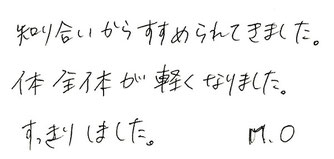 知り合いからすすめられてきました。
体全体が軽くなりました。
すっきりしました。 M.O